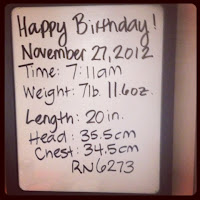 Happy Birthday!
November 27, 2012
Time: 7:11am
Weight: 7lb. 11.6oz.
Length: 20in.
Head: 35.5cm
Chest: 34.5cm
RN6273